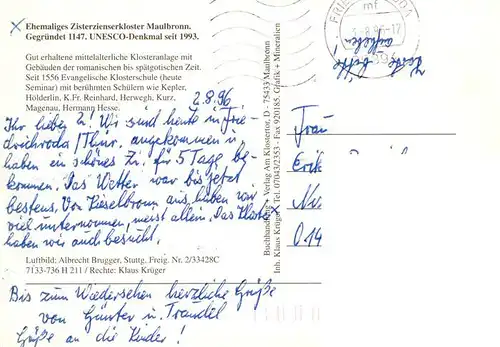 Ehemaliges Zisterzienserkloster Maulbronn.
Gegründet 1147. UNESCO-Denkmal seit 1993.
Gut erhaltene mittelalterliche Klosteranlage mit
Gebäuden der romanischen bis spätgotischen Zeit.
Seit 1556 Evangelische Klosterschule (heute
Seminar) mit berühmten Schülern wie Kepler,
Hölderlin, K.Fr. Reinhard, Herwegh, Kurz,
Magenau, Hermann Hesse.
2.8.96
Ihr lieben 2! Wir sind heute in Frie-
drichroda/Thür. angekommen u.
haben ein schönes Zi. für 5 Tage be-
kommen. Das Wetter war bis jetzt
bestens. Von Kieselbronn aus haben wir
viel unternommen, meist allein. Das Kloster
haben wir auch besucht.
Luftbild: Albrecht Brugger, Stuttg. Freig. Nr. 2/33428C
7133-736 H 211 / Rechte: Klaus Krüger
Bis zum Wiedersehen herzliche Grüße
von Günter u. Traudel
Grüße an die Kinder!
Buchhandlung + Verlag Am Klostertor, D - 75433 Maulbronn
Inh. Klaus Krüger Tel. 07043/2353 - Fax 920185. Grafik + Mineralien
mf
Karte bitte
aufheben
Frau
Erik
014